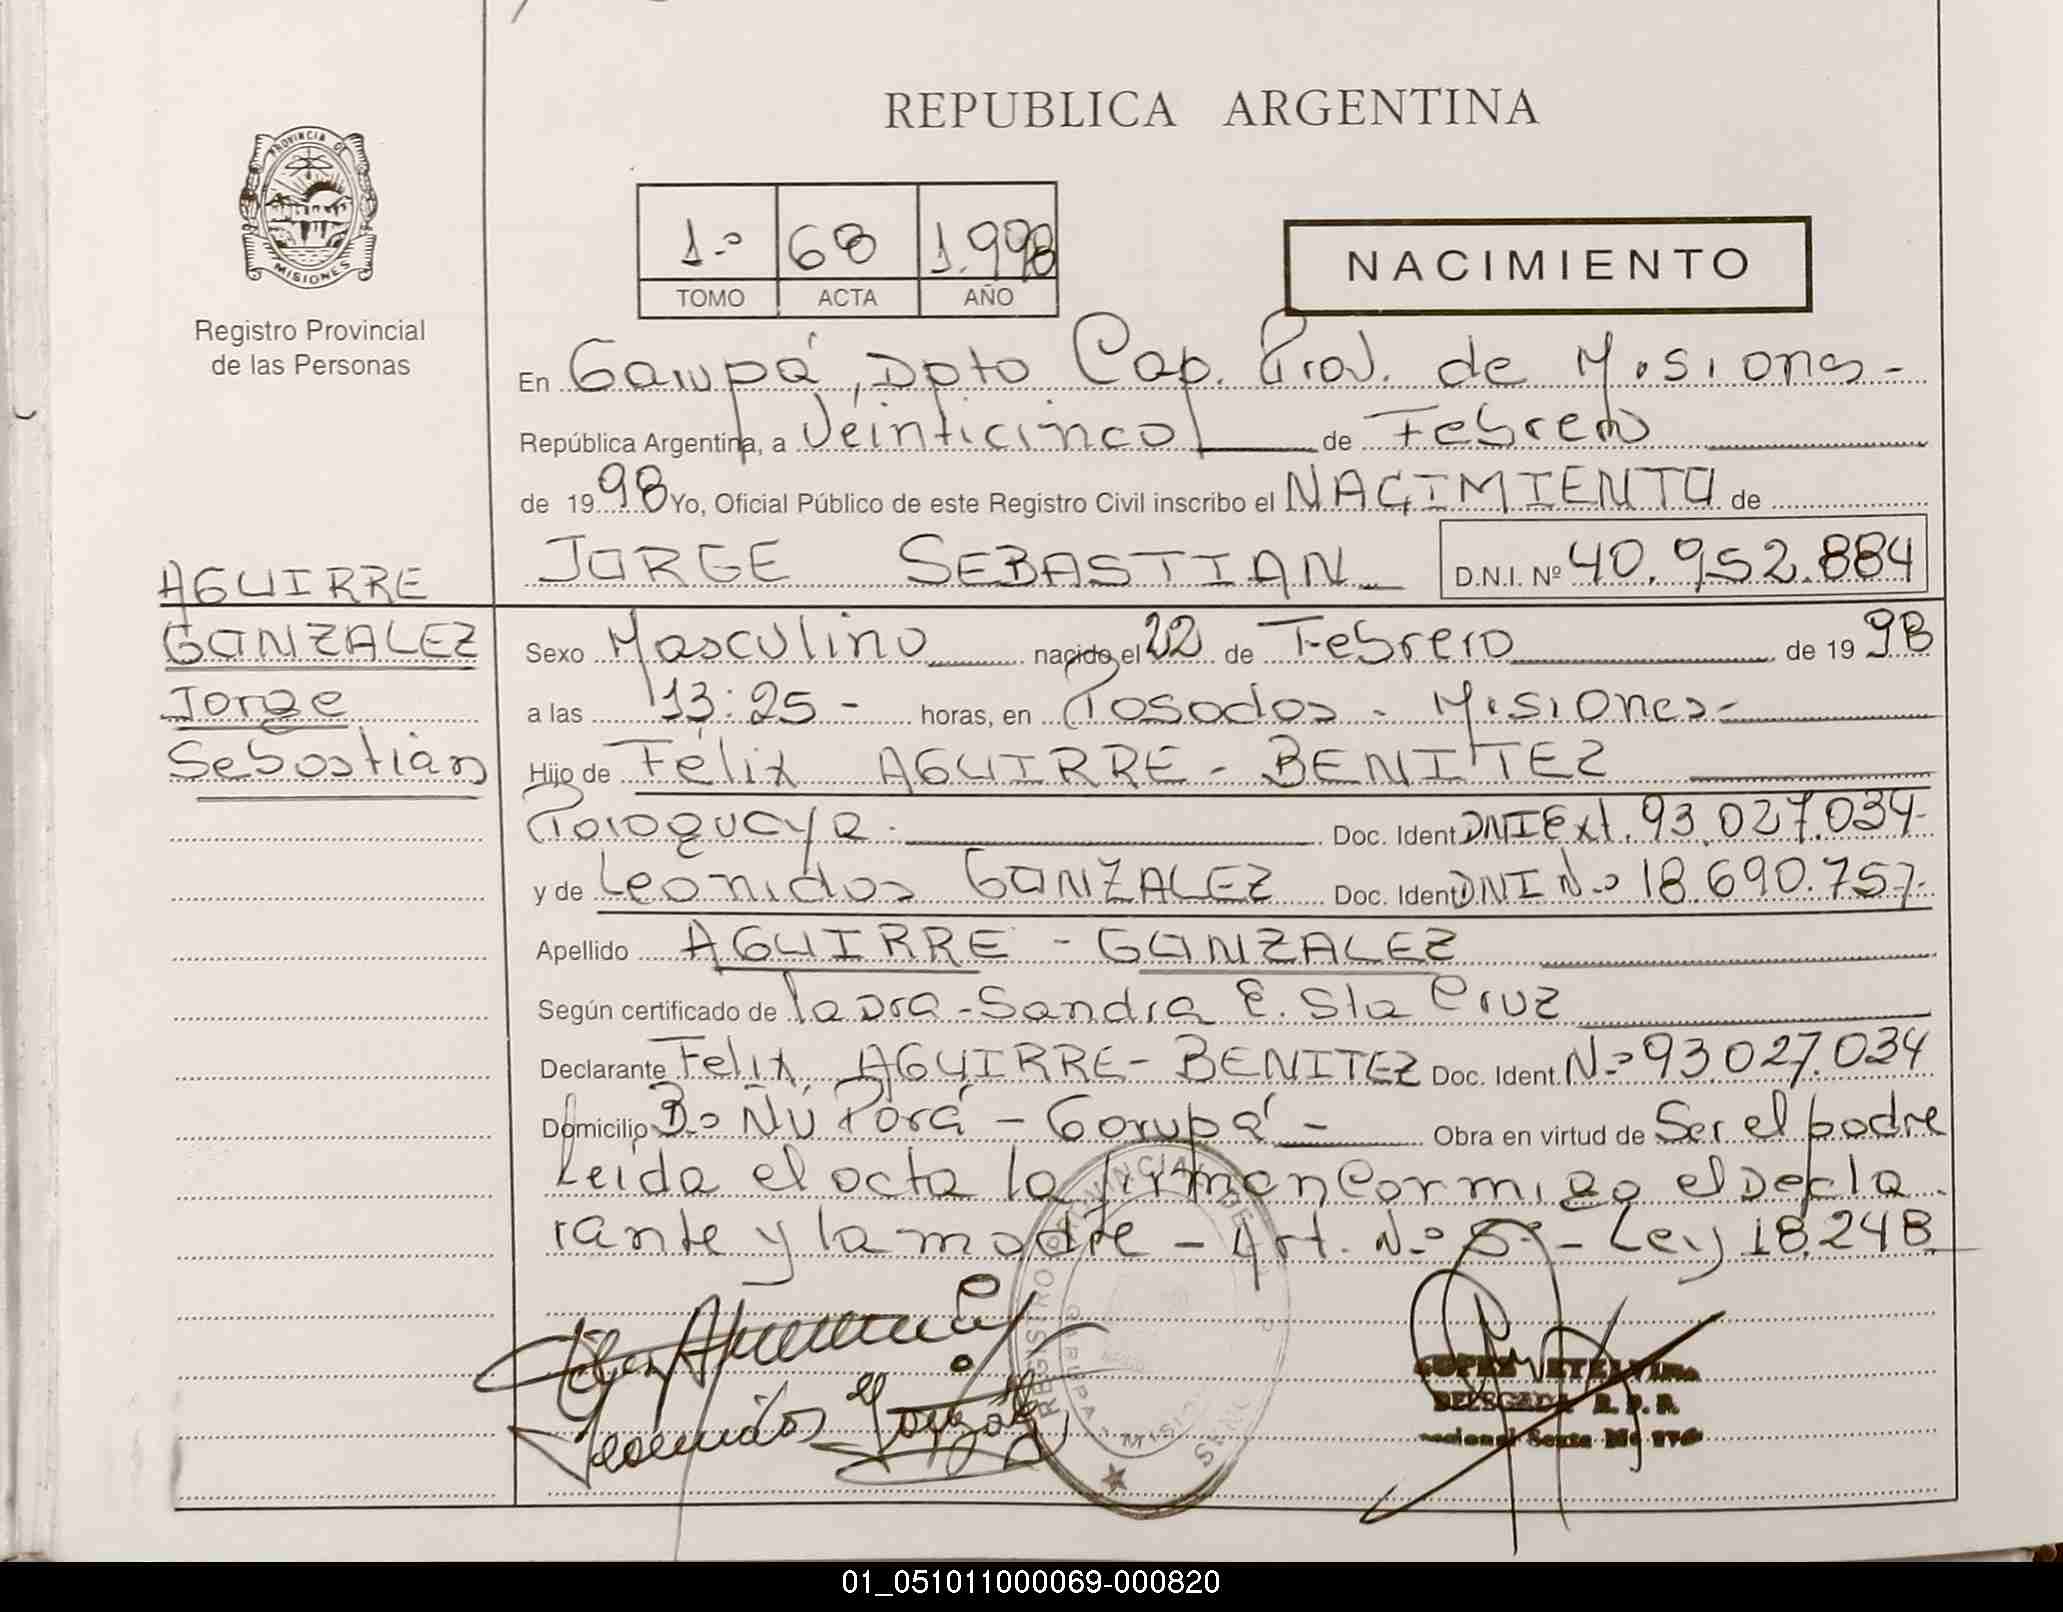 REPUBLICA ARGENTINA
PROVINCIA DE
MISIONES
Registro Provincial
de las Personas
1.º 68 1.998
TOMO ACTA AÑO
NACIMIENTO
En Garupá, Dpto Cap. Prov. de Misiones-
República Argentina, a Veinticinco de Febrero
de 1998 Yo, Oficial Público de este Registro Civil inscribo el NACIMIENTO de
JORGE SEBASTIAN D.N.I. Nº 40.952.884
AGUIRRE
GONZALEZ
Jorge
Sebastián
Sexo Masculino nacido el 22 de Febrero de 1998
a las 13:25 - horas, en Posadas - Misiones-
Hijo de Félix AGUIRRE - BENITEZ
Paraguaya. Doc. Ident DNI Ext. 93.027.034-
y de Leonidas GONZALEZ Doc. Ident DNI N.º 18.690.757-
Apellido AGUIRRE - GONZALEZ
Según certificado de la Dra-Sandra E. Sta Cruz
Declarante Felix AGUIRRE-BENITEZ Doc. Ident. N.º 93.027.034
Domicilio Bº Ñú Porá - Garupá - Obra en virtud de Ser el padre
Leida el acta la firman Conmigo el Decla
rante y la madre - Art. N.º 5º - Ley 18.248
REGISTRO PROVINCIAL DE
GARUPA MISIONES
Leonidas González
DELEGADA R.P.P.
01_051011000069-000820